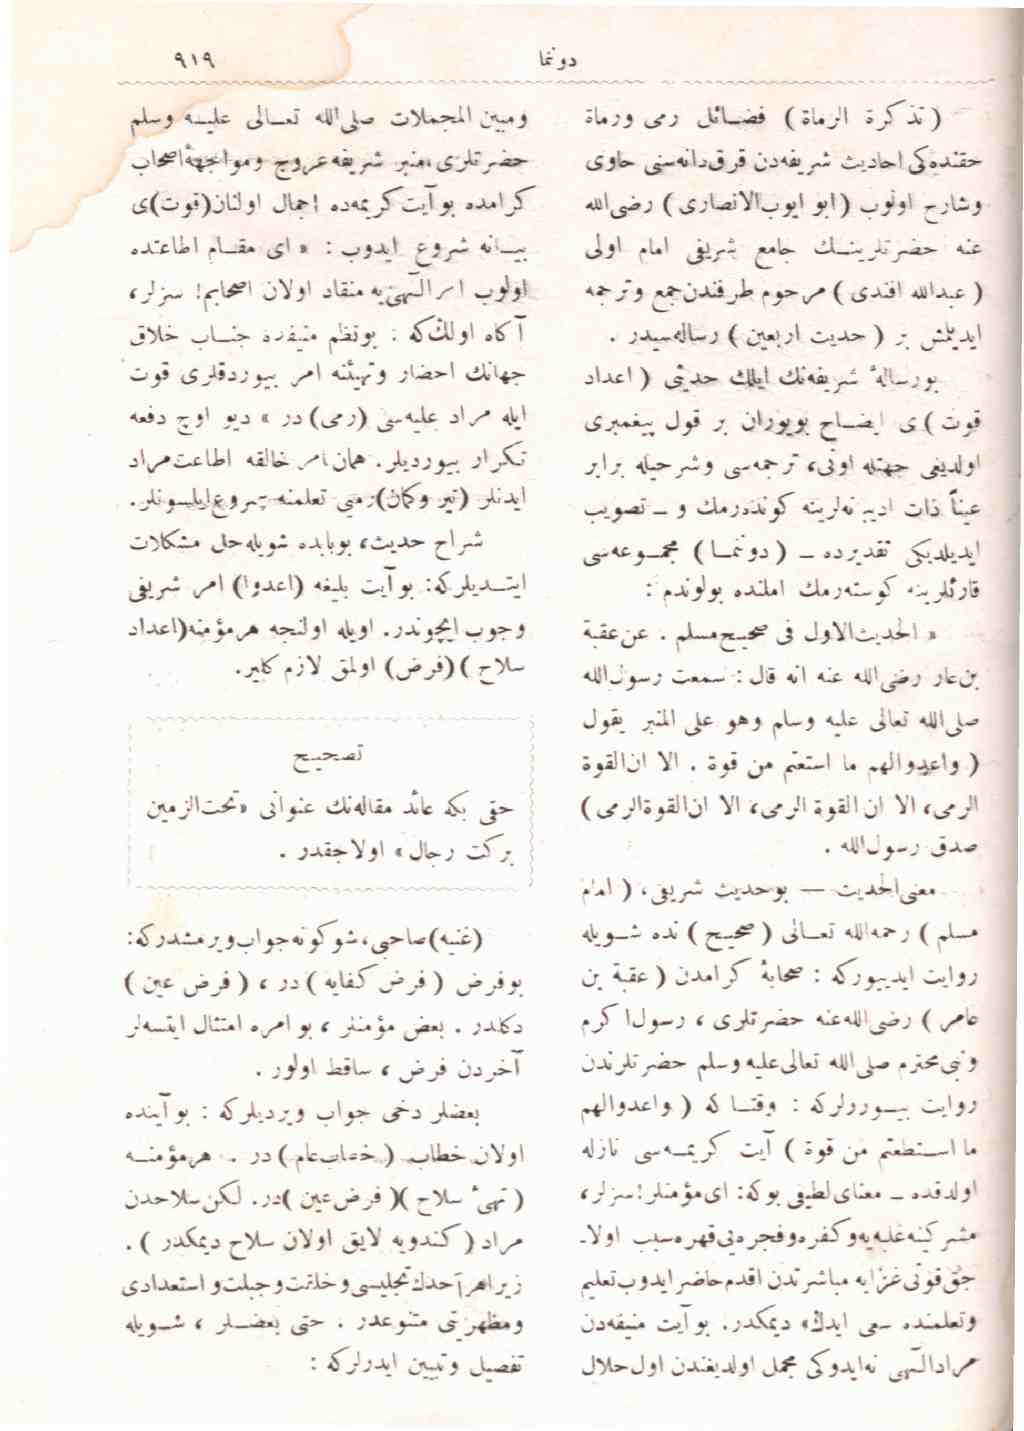 دوننما
٩١٩
( تذكرة الرماة ) فضــائل رمی ورماة
حقنده‌كی احادیث شریفه‌دن قرق‌دانه‌سنی حاوی
وشارح اولوب ( ابو ایوب‌الانصاری ) رضی‌الله
عنه حضرتلرینــك جامع شریفی امام اولی
( عبدالله افندی ) مرحوم طرفندن جمع وترجمه
ایدیلمش بر ( حدیث اربعین ) رساله‌سیدر .
بورسالهٔ شریفه‌نك ایلك حدیثی ( اعداد
قوت ) ی ایضــاح بویوران بر قول پیغمبری
اولدیغی جهتله اونی، ترجمه‌سی وشرحیله برابر
عیناً ذات ادیبانه‌لرینه كوندرمك و ــ تصویب
ایدیلدیكی تقدیرده ــ ( دوننمــا ) مجمــوعه‌سی
قارئلرینه كوسته‌رمك املنده بولوندم :
« الحدیث‌الاول فی صحیح‌مسلم . عن‌عقبة
بن‌عامر رضی‌الله عنه انه قال : سمعت رسول‌الله
صلی‌الله تعالی علیه وسلم وهو علی المنبر یقول
( واعدوالهم ما استعتم من قوة . الا ان‌القوة
الرمی، الا ان القوة الرمی، الا ان‌القوةالرمی )
صدق رسول‌الله .
معنی‌الحدیث — بوحدیث شریفی، ( امام
مسلم ) رحمه‌الله تعــالی ( صحیح ) نده شــویله
روایت ایدییوركه : صحابهٔ كرامدن ( عقبة بن
عامر ) رضی‌الله‌عنه حضرتلری ، رسول‌ا كرم
ونبی‌محترم صلی‌الله تعالی‌علیه وسلم حضرتلرندن
روایت بیــوررلركه : وقتــا كه ( واعدوالهم
ما اســتطعتم من قوة ) آیت كریمــه‌سی نازله
اولدقده ــ معنای‌لطیفی بوكه: ای‌مؤمنلر!سزلر،
مشركینه‌غلبه‌یه‌وكفره‌وفجره‌یی‌قهره‌سبب اولا-
جق‌قوتی‌غزایه مباشرتدن اقدم‌حاضرایدوب‌تعلیم
وتعلمنده سعی ایدك» دیمكدر. بوآیت منیفه‌دن
مرادالٓهی نه‌ایدوكی مجمل اولدیغندن اول‌حلال
ومبین المجملات صلی‌الله تعــالی علیــه وسلم
حضرتلری،منبر شریفه‌عروج ومواجههٔ‌اصحاب
كرامده بوآیت كریمه‌ده اجمال اولنان(قوت)ی
بیــانه شروع ایدوب : « ای مقــام اطاعتده
اولوب امرالٓهی‌یه منقاد اولان اصحابم! سزلر،
آكاه اولك‌كه : بونظم منیفده جنــاب خلاق
جهانك احضار وتهیئنه امر بیوردقلری قوت
ایله مراد علیه‌سی (رمی) در » دیو اوچ دفعه
تكرار بیوردیلر. همان‌امر خالقه اطاعت‌مراد
ایدنلر (تیر وكمان)رمیی تعلمنه شروع‌ایلسونلر.
شراح حدیث، بوبابده شویله‌حل مشكلات
ایتــدیلركه: بوآیت بلیغه (اعدوا) امر شریفی
وجوب ایچوندر. اویله اولنجه هرمؤمنه(اعداد
سلاح ) (فرض) اولمق لازم كلیر.
تصحیح
حقی بكه عائد مقاله‌نك عنوانی «تحت‌الزمین
بركت رجال» اولاجقدر .
(غنیه)صاحبی،شوكونه‌جواب‌ویرمشدركه:
بوفرض ( فرض كفایه ) در ، ( فرض عین )
دكلدر . بعض مؤمنلر ، بوامره امتثال ایتسه‌لر
آخردن فرض ، ساقط اولور .
بعضلر دخی جواب ویردیلركه : بوآینده
اولان خطاب ( خطاب‌عام ) در . هرمؤمنــه
( تهیٔ سلاح )( فرض‌عین )در. لكن‌سلاحدن
مراد ( كندویه لایق اولان سلاح دیمكدر ) .
زیراهرآحدك تجلیسی‌وخلقت‌وجبلت‌و استعدادی
ومظهریتی متنوعدر . حتی بعضــلر ، شــویله
تفصیل وتبیین ایدرلركه :